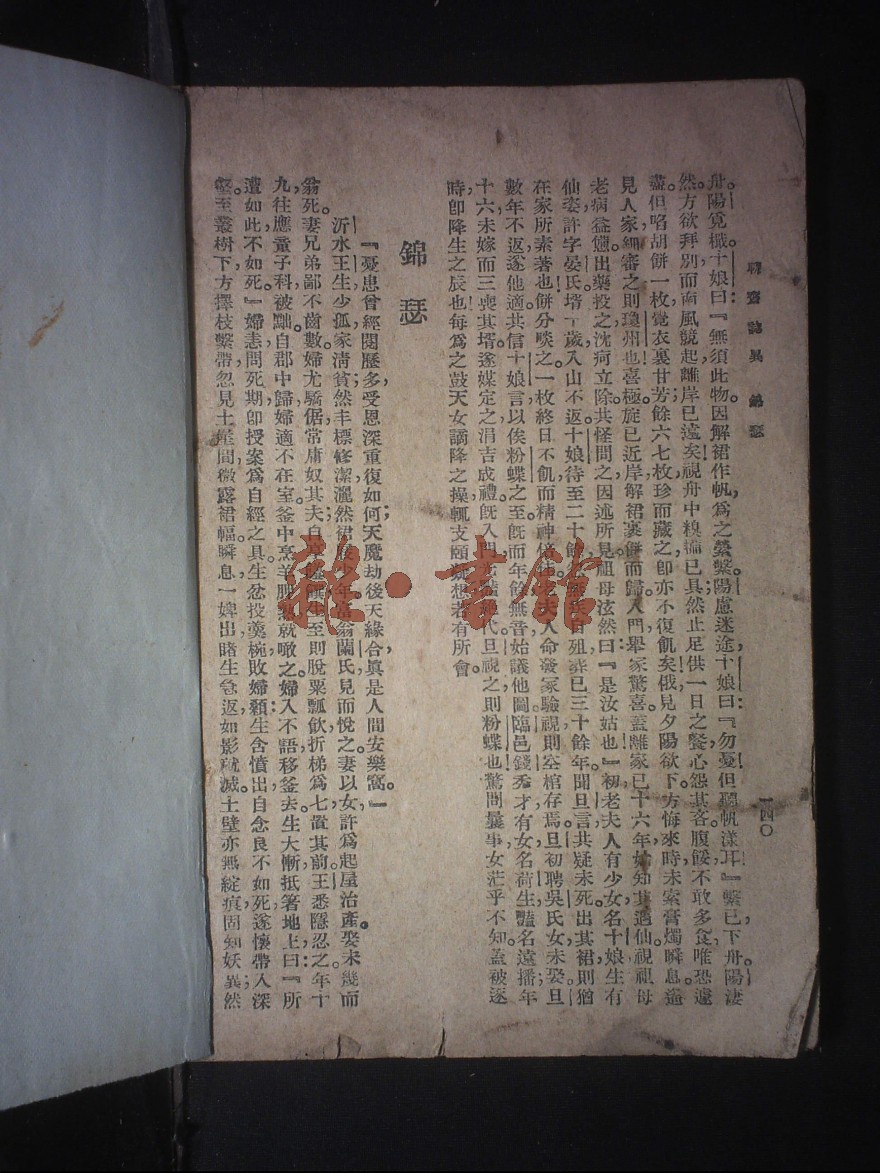 聊齋誌異 錦瑟
一四〇
舟。陽覓檝。十娘曰:『無須此物。因解裙作帆,爲之縈繫。陽慮迷途,十娘曰:『勿憂,但聽帆漾耳。』繫已,下舟。陽淒
然,方欲拜別,而南風競起,離岸已遠矣。視舟中糗糒已具,然止足供一日之餐,心怨其吝。腹餒不敢多食,唯恐遽
盡,但啗胡餅一枚,覺衣裏甘芳。餘六七枚,珍而藏之,卽亦不復飢矣。俄見夕陽欲下,方悔來時未索膏燭。瞬息遙
見人家,細審之,則瓊州也。喜極。旋已近岸,解裙裹餅而歸。入門,舉家驚喜,蓋離家已十六年,始知其遇仙。視祖母
老病益憊,出藥投之,沈疴立除。共怪問之,因述所見。祖母泫然曰:『是汝姑也。』初,老夫人有少女,名十娘,生有
仙姿,許字晏氏。壻十歲入山不返,十娘待至二十餘,忽無疾自殂,葬已三十餘年。聞旦言,共疑未死。出其裙,則猶
在家所素著也。餅分啖之,一枚終日不飢,而精神倍生。老夫人命發冢驗視,則空棺存焉。旦初聘吳氏女未娶,旦
數年不返,遂他適。共信十娘言,以俟粉蝶之至;旣而年餘無音,始議他圖。臨邑錢秀才,有女名荷生,豔名遠播。年
十六,未嫁而三喪其壻。遂媒定之,涓吉成禮。旣入門,光豔絕代,旦視之,則粉蝶也。驚問曩事,女茫乎不知。蓋被逐
時,卽降生之辰也。每爲之鼓天女謫降之操,輒支頤凝想,若有所會。
錦瑟
『憂患曾經閱歷多,受恩深重復如何;天魔劫後天緣合,眞是人間安樂窩。』
沂水王生,少孤,家淸貧;然丰標修潔,灑然裙屐少年。富翁蘭氏,見而悅之,妻以女,許爲起屋治產。娶未幾而
翁死。妻兄弟鄙不齒數,婦尤驕倨,常庸奴其夫;自享饈饌,生至則脫粟瓢飲,折梯爲七,置其前。王悉隱忍之。年十
九,往應童子科,被黜。自郡中歸,婦適不在室,釜中烹羊臛熟,就噉之。婦入,不語,移釜去。生大慚,抵箸地上,曰:『所
遭如此,不如死。』婦恚,問死期,卽授索爲自經之具。生忿投羹椀,敗婦顙。生含憤出,自念良不如死,遂懷帶入深
壑。至叢樹下,方擇枝繫帶,忽見土崖間,微露裙幅。瞬息,一婢出,睹生急返,如影就滅。土壁亦無綻痕,固知妖異,然